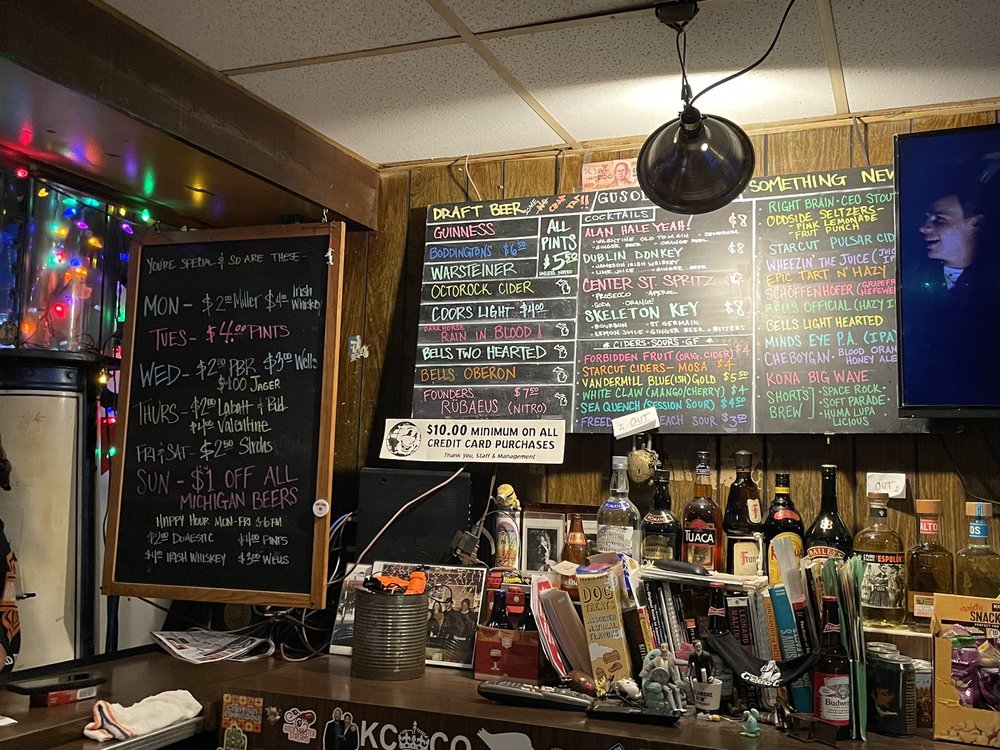 YOU'RE SPECIAL & SO ARE THESE-
MON - $2.00 Miller $4.00 Irish Whiskey
TUES - $4.00 PINTS
WED - $2.00 PBR $3.00 Wells
$4.00 JAGER
THURS - $2.00 Labatt & Bud
$4.00 Valentine
FRI & SAT - $2.50 Strohs
SUN - $1 OFF ALL
MICHIGAN BEERS
HAPPY HOUR MON-FRI 3-6PM
$2.00 DOMESTIC $4.00 PINTS
$4.00 IRISH WHISKEY $3.00 WELLS
DRAFT BEER
GUINNESS
BODDINGTONS $6.50
WARSTEINER
OCTOROCK CIDER
COORS LIGHT $4.00
DARKHORSE
RAIN IN BLOOD!
BELLS TWO HEARTED
BELLS OBERON
FOUNDERS $7.50
RUBAEUS (NITRO)
ALL
PINTS
$5.50
UNLESS NOTED
COCKTAILS
ALAN HALE YEAH! $8
VALENTINE OLD TOM GIN
GINGER BEER - ORANGE PEEL
DUBLIN DONKEY $8
JAMESON IRISH WHISKEY
LIME JUICE - GINGER BEER
CENTER ST. SPRITZ
PROSECCO - APEROL
SODA - ORANGE
SKELETON KEY $8
BOURBON - ST GERMAIN
LEMON JUICE - GINGER BEER + BITTERS
CIDERS-SOURS-GF
FORBIDDEN FRUIT (ORIG. CIDER) $4
STARCUT CIDERS - MOSA $4
VANDERMILL BLUE(ISH) GOLD $5.50
WHITE CLAW (MANGO/CHERRY) $4
SEA QUENCH (SESSION SOUR) $4.50
FREED EACH SOUR $3.50
OUT
SOMETHING NEW
RIGHT BRAIN-CEO STOUT
ODDSIDE SELTZERS-
- PINK LEMONADE
FRUIT PUNCH
STARCUT PULSAR CID
WHEEZIN' THE JUICE (JUIC
EPIC TART N' HAZY
SCHOFFENHOFER (GRAPEF
HEFEWEI
BELLS OFFICIAL (HAZY I
BELLS LIGHT HEARTED
MINDS EYE P.A. (IPA)
CHEBOYGAN - BLOOD ORAN
HONEY ALE
KONA BIG WAVE
SHORTS BREW
- SPACE ROCK
- SOFT PARADE
- HUMA LUPA
LICIOUS
$10.00 MINIMUM ON ALL
CREDIT CARD PURCHASES
Thank You, Staff & Management
OUT
TUACA
BAILEYS
ESPOLÒN
ALTO
DOG
TREATS
ASSORTED
NATURAL
FLAVOURS
Budweiser
SNACK
KC CO